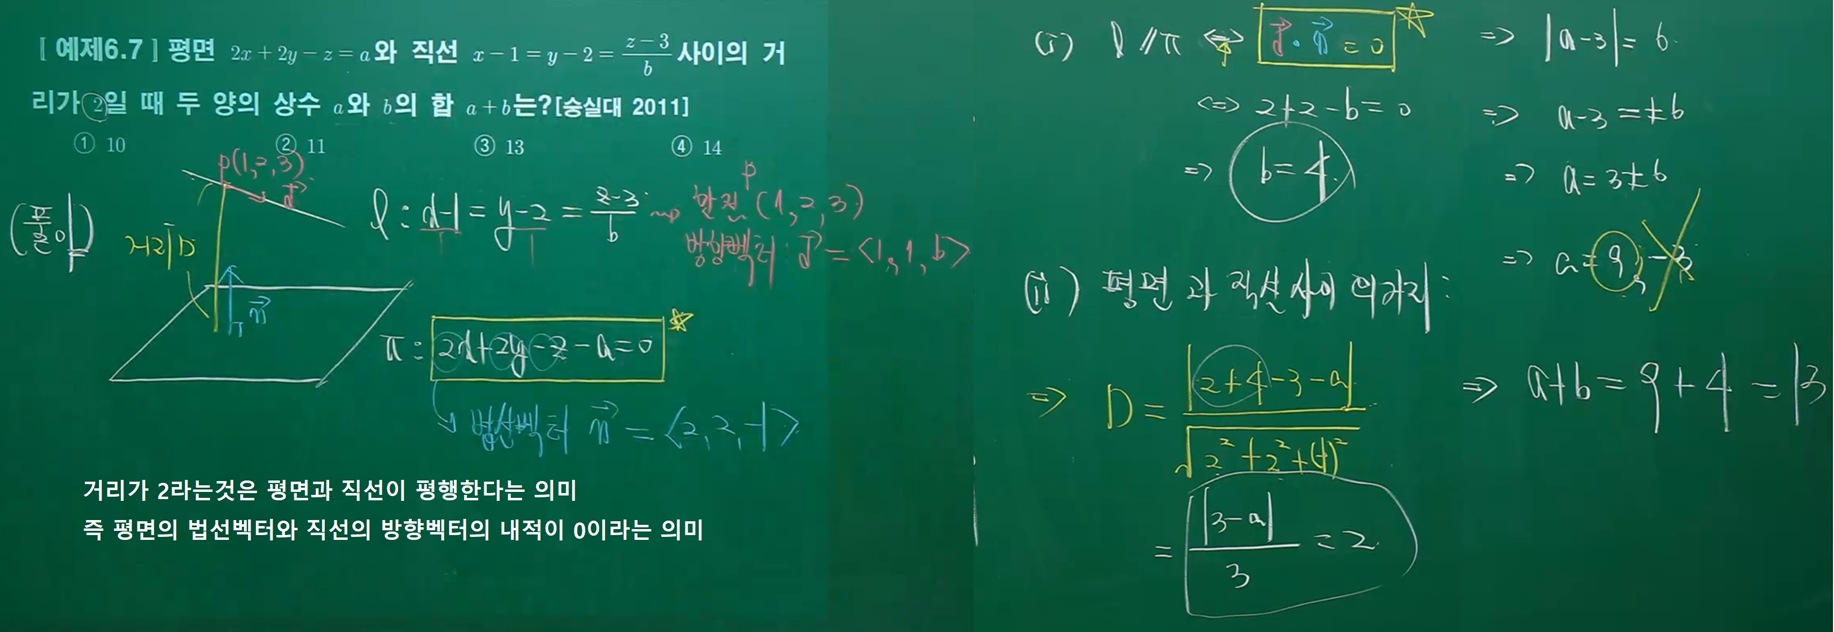 [ 예제6.7 ] 평면 2x+2y−z=a와 직선 x−1=y−2=\frac{z−3}{b} 사이의 거
리가 2일 때 두 양의 상수 a와 b의 합 a+b는?[숭실대 2011]
① 10 ② 11 ③ 13 ④ 14
(풀이)
P(1,2,3)
d⃗
거리 D
n⃗
l : \frac{x-1}{1} = \frac{y-2}{1} = \frac{z-3}{b} ⇝ 한점 P(1,2,3)
방향벡터 : d⃗ = <1,1,b>
π : 2x+2y-z-a=0
↳ 법선벡터 n⃗ = <2,2,-1>
거리가 2라는것은 평면과 직선이 평행한다는 의미
즉 평면의 법선벡터와 직선의 방향벡터의 내적이 0이라는 의미
(i) l // π ⇔ d⃗·n⃗ = 0
⇔ 2+2-b=0
⇒ b=4
(ii) 평면과 직선사이의거리 :
⇒ D = \frac{|2+4-3-a|}{\sqrt{2²+2²+(-1)²}}
= \frac{|3-a|}{3} = 2
⇒ |a-3| = 6
⇒ a-3 = ±6
⇒ a = 3±6
⇒ a = 9, -3
⇒ a+b = 9+4 = 13